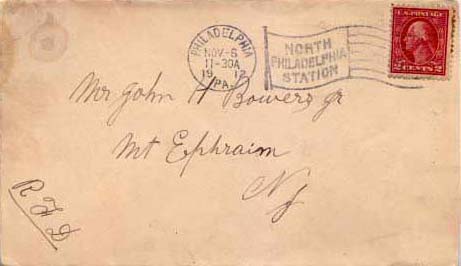 PHILADELPHIA
NOV-6
11-30A
1912
PA.
NORTH
PHILADELPHIA
STATION
U.S. POSTAGE
2 CENTS 2
Mr John H Bowers Jr
Mt Ephraim
NJ
R.F.D